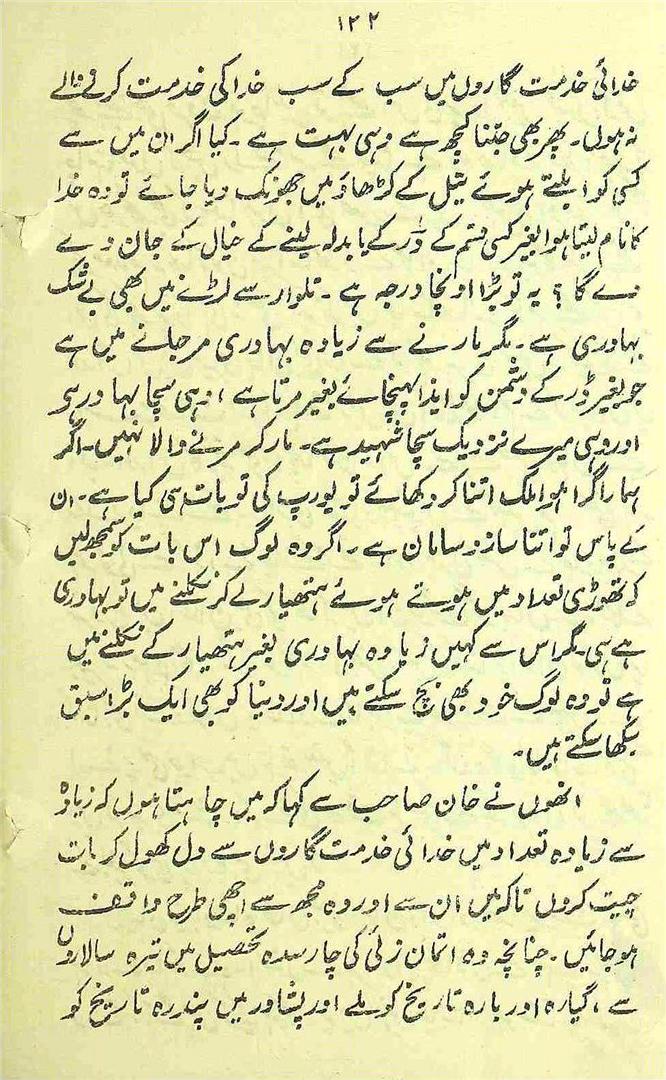 ۱۲۲
خدائی خدمت گاروں میں سب کے سب خدا کی خدمت کرنے والے
نہ ہوں۔ پھر بھی جتنا کچھ ہے وہی بہت ہے۔ کیا اگر ان میں سے
کسی کو ابلتے ہوئے تیل کے کڑھاؤ میں جھونک دیا جائے تو وہ خدا
کا نام لیتا ہوا بغیر کسی قسم کے ڈر کے یا بدلہ لینے کے خیال کے جان دے
دے گا؟ یہ تو بڑا اونچا درجہ ہے۔ تلوار سے لڑنے میں بھی بے شک
بہادری ہے۔ مگر مارنے سے زیادہ بہادری مر جانے میں ہے
جو بغیر ڈر کے دشمن کو ایذا پہنچائے بغیر مرتا ہے، وہی سچا بہادر ہے
اور وہی میرے نزدیک سچا شہید ہے۔ مار کر مرنے والا نہیں۔ اگر
ہمارا گرا ہوا ملک اتنا کر دکھائے تو یورپ کی تو بات ہی کیا ہے۔ ان
کے پاس تو اتنا ساز و سامان ہے۔ اگر وہ لوگ اس بات کو سمجھ لیں
کہ تھوڑی تعداد میں ہوتے ہوئے ہتھیار لے کر نکلنے میں تو بہادری
ہے ہی۔ مگر اس سے کہیں زیادہ بہادری بغیر ہتھیار کے نکلنے میں
ہے تو وہ لوگ خود بھی بچ سکتے ہیں اور دنیا کو بھی ایک بڑا سبق
سکھا سکتے ہیں۔
انھوں نے خان صاحب سے کہا کہ میں چاہتا ہوں کہ زیادہ
سے زیادہ تعداد میں خدائی خدمت گاروں سے دل کھول کر بات
چیت کروں تاکہ میں ان سے اور وہ مجھ سے اچھی طرح واقف
ہو جائیں۔ چنانچہ وہ اتمان زئی کی چارسدہ تحصیل میں تیرہ سالاروں
سے، گیارہ اور بارہ تاریخ کو ملے اور پشاور میں پندرہ تاریخ کو